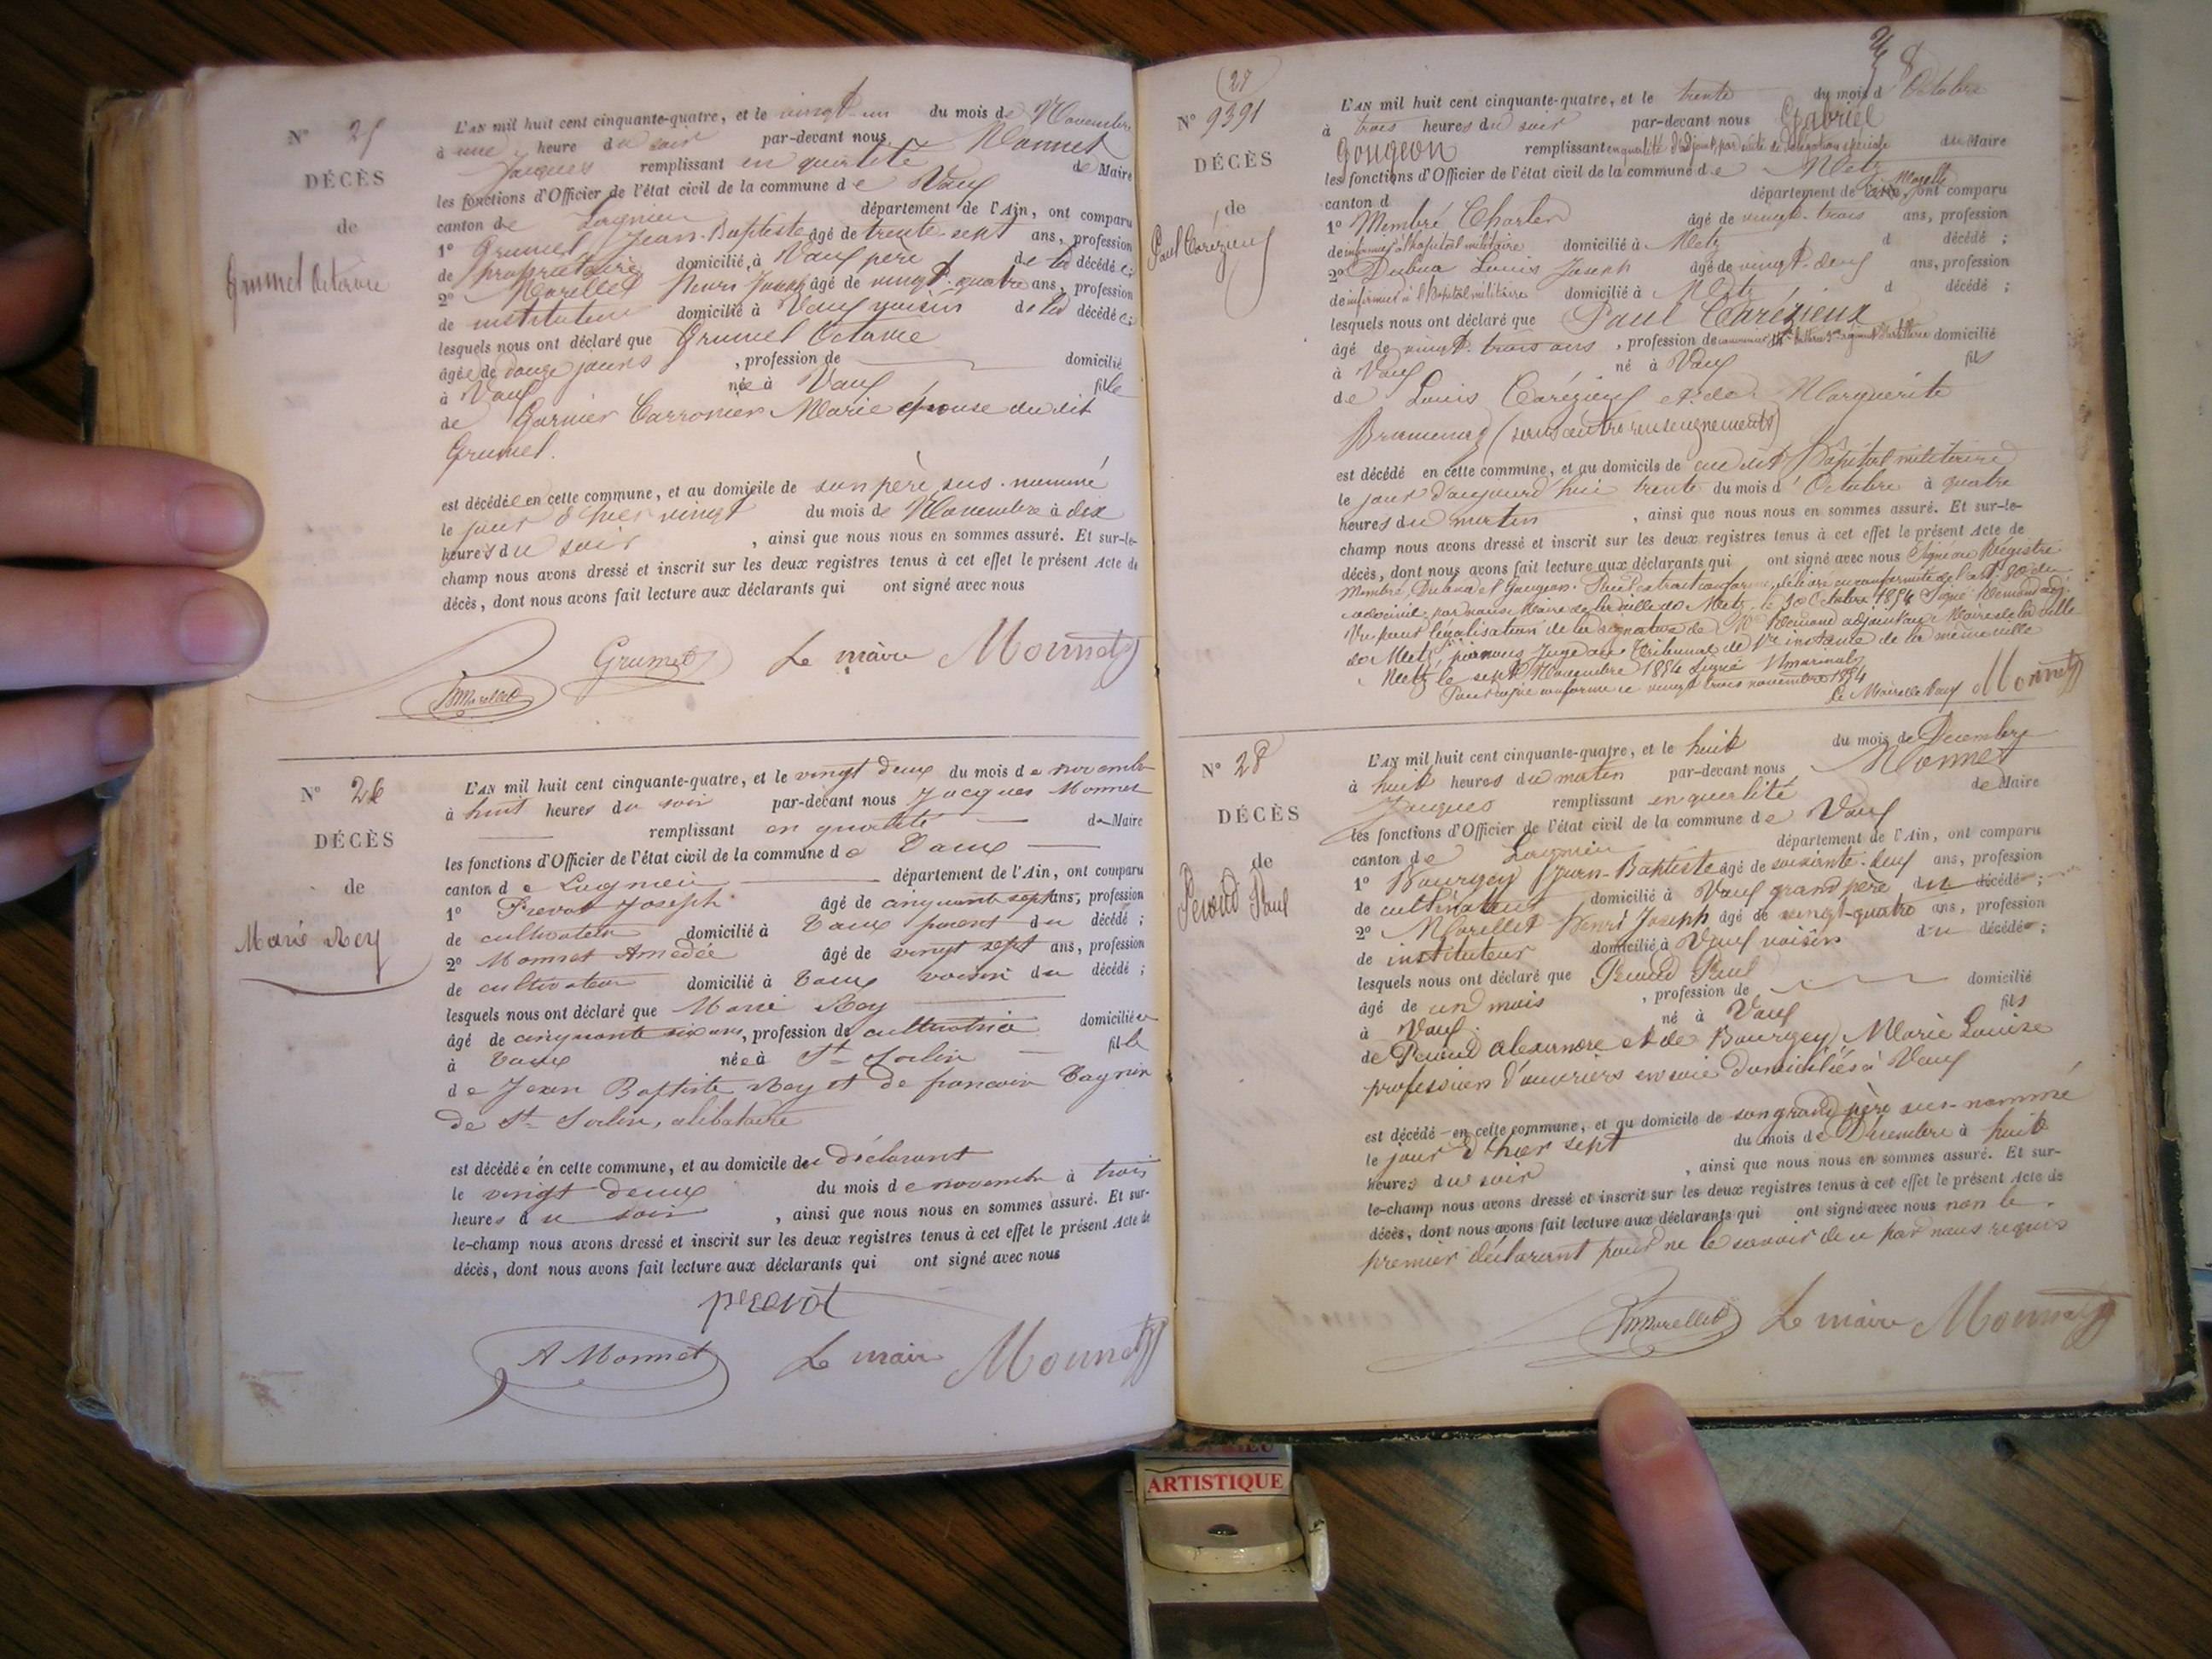 N° 25
DÉCÈS
de
Grumet Octavie
L'AN mil huit cent cinquante-quatre, et le vingt-un du mois de Novembre
à une heure du soir par-devant nous Monnet
Jacques remplissant en qualité de Maire
les fonctions d'Officier de l'état civil de la commune de Vaux
canton de Lagnieu département de l'Ain, ont comparu
1° Grumet Jean-Baptiste âgé de trente-sept ans, profession
de propriétaire domicilié à Vaux père de la décédée;
2° Morellet Henri Joseph âgé de vingt-quatre ans, profession
de instituteur domicilié à Vaux voisin de la décédée;
lesquels nous ont déclaré que Grumet Octavie
âgée de douze jours, profession de domicilié
à Vaux née à Vaux fille
de Garnier Carronier Marie épouse du dit
Grumet.
est décédée en cette commune, et au domicile de son père sus-nommé
le jour d'hier vingt du mois de Novembre à dix
heures du soir, ainsi que nous nous en sommes assuré. Et sur-le-
champ nous avons dressé et inscrit sur les deux registres tenus à cet effet le présent Acte de
décès, dont nous avons fait lecture aux déclarants qui ont signé avec nous
Grumet Le maire Monnet
Morellet
N° 26
DÉCÈS
de
Marie Rey
L'AN mil huit cent cinquante-quatre, et le vingt deux du mois de novembre
à huit heures du soir par-devant nous Jacques Monnet
remplissant en qualité de Maire
les fonctions d'Officier de l'état civil de la commune de Vaux
canton de Lagnieu département de l'Ain, ont comparu
1° Prevot Joseph âgé de cinquante sept ans, profession
de cultivateur domicilié à Vaux parent du décédé;
2° Monnet Amédée âgé de vingt sept ans, profession
de cultivateur domicilié à Vaux voisin du décédé;
lesquels nous ont déclaré que Marie Rey
âgé de cinquante six ans, profession de cultivatrice domiciliée
à Vaux née à St Sorlin fille
de Jean Baptiste Rey et de francoise Vagnin
de St Sorlin, célibataire
est décédée en cette commune, et au domicile du déclarant
le vingt deux du mois de novembre à trois
heures du soir, ainsi que nous nous en sommes assuré. Et sur-
le-champ nous avons dressé et inscrit sur les deux registres tenus à cet effet le présent Acte de
décès, dont nous avons fait lecture aux déclarants qui ont signé avec nous
prevot
A Monnet Le maire Monnet
(27)
N° 9391
DÉCÈS
de
Paul Carézieux
L'AN mil huit cent cinquante-quatre, et le trente du mois d'Octobre
à trois heures du soir par-devant nous Gabriel
Gougeon remplissant en qualité d'adjoint, par suite de délégation spéciale du Maire
les fonctions d'Officier de l'état civil de la commune de Metz
canton d département de l'Ain, Moselle ont comparu
1° Membré Charles âgé de vingt-trois ans, profession
de infirmier à l'hopital militaire domicilié à Metz d décédé;
2° Dubua Louis Joseph âgé de vingt-deux ans, profession
de infirmier à l'hopital militaire domicilié à Metz d décédé;
lesquels nous ont déclaré que Paul Carézieux
âgé de vingt-trois ans, profession de domicilié
à Vaux né à Vaux fils
de Louis Carézieux et de Marguerite
(sans autre renseignements)
est décédé en cette commune, et au domicile de au dit hôpital militaire
le jour d'aujourd'hui trente du mois d'Octobre à quatre
heures du matin, ainsi que nous nous en sommes assuré. Et sur-le-
champ nous avons dressé et inscrit sur les deux registres tenus à cet effet le présent Acte de
décès, dont nous avons fait lecture aux déclarants qui ont signé avec nous Signé au Registre
Membré, Dubua et Gougeon. Pour extrait conforme, délivré en conformité de l'art. 80 du
code civil, par nous Maire de la ville de Metz, le 30 Octobre 1854 Signé
Vu pour légalisation de la signature de Mr adjoint au Maire de la ville
de Metz, par nous Juge au Tribunal de 1re instance de la même ville
Metz le sept Novembre 1854 signé
Pour copie conforme ce vingt trois novembre 1854
Le Maire de Vaux Monnet
N° 28
DÉCÈS
de
Peroud Paul
L'AN mil huit cent cinquante-quatre, et le huit du mois de Decembre
à huit heures du matin par-devant nous Monnet
Jacques remplissant en qualité de Maire
les fonctions d'Officier de l'état civil de la commune de Vaux
canton de Lagnieu département de l'Ain, ont comparu
1° Bourgey Jean-Baptiste âgé de soixante-deux ans, profession
de cultivateur domicilié à Vaux grand père du décédé;
2° Morellet Henri Joseph âgé de vingt-quatre ans, profession
de instituteur domicilié à Vaux voisin du décédé;
lesquels nous ont déclaré que Peroud Paul
âgé de un mois, profession de domicilié
à Vaux né à Vaux fils
de Peroud alexandre et de Bourgey Marie Louise
profession d'ouvriers en soie domiciliés à Vaux
est décédé en cette commune, et au domicile de son grand père sus-nommé
le jour d'hier sept du mois de Décembre à huit
heures du soir, ainsi que nous nous en sommes assuré. Et sur-
le-champ nous avons dressé et inscrit sur les deux registres tenus à cet effet le présent Acte de
décès, dont nous avons fait lecture aux déclarants qui ont signé avec nous non le
premier déclarant pour ne le savoir de ce par nous requis
Morellet Le maire Monnet
ARTISTIQUE